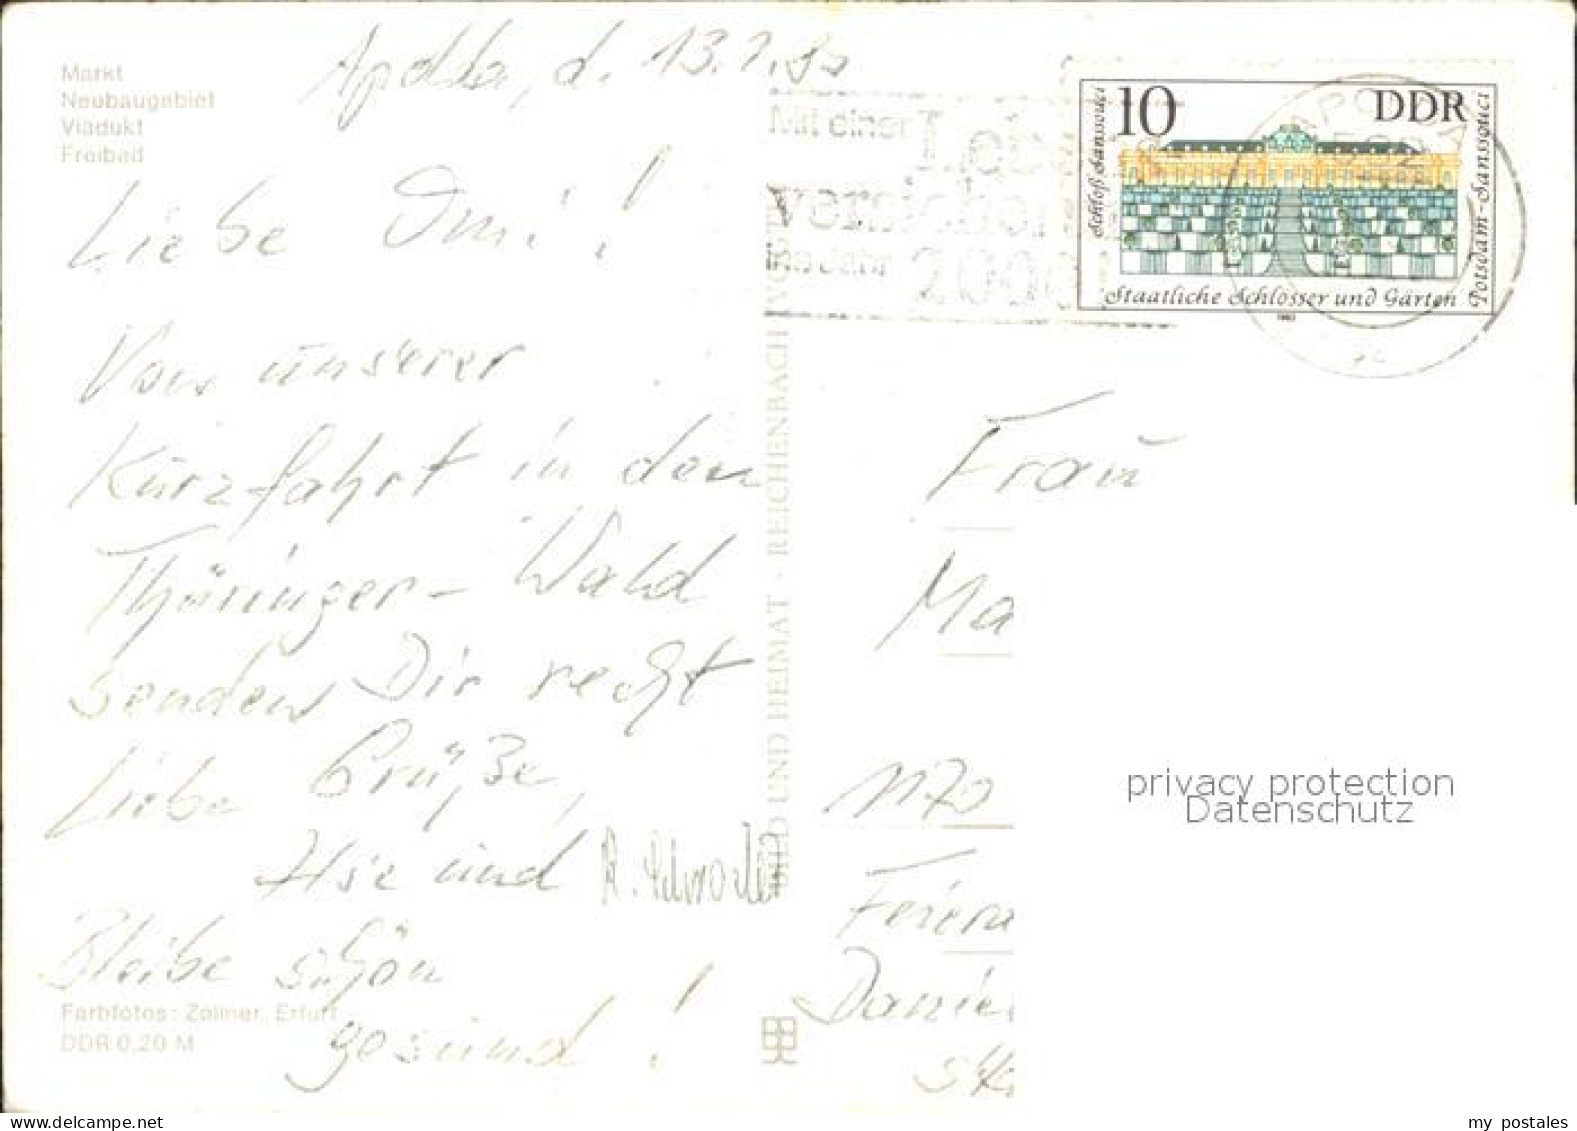 Apolda, d. 13.7.85
Markt
Neubaugebiet
Viadukt
Freibad
Liebe Omi!
Von unserer
Kurzfahrt in den
Thüringer-Wald
senden Dir recht
Liebe Grüße,
Ilse und
Bleibe schön
gesund!
Farbfotos: Zollner, Erfurt
DDR 0,20 M
BILD UND HEIMAT · REICHENBACH
Mit einer
versicher
ins Jahr 2000
10 DDR
Schloß Sanssouci
Potsdam-Sanssouci
Staatliche Schlösser und Gärten
1983
Frau
Ma
1170
Feiera
Danie
privacy protection
Datenschutz
my postales